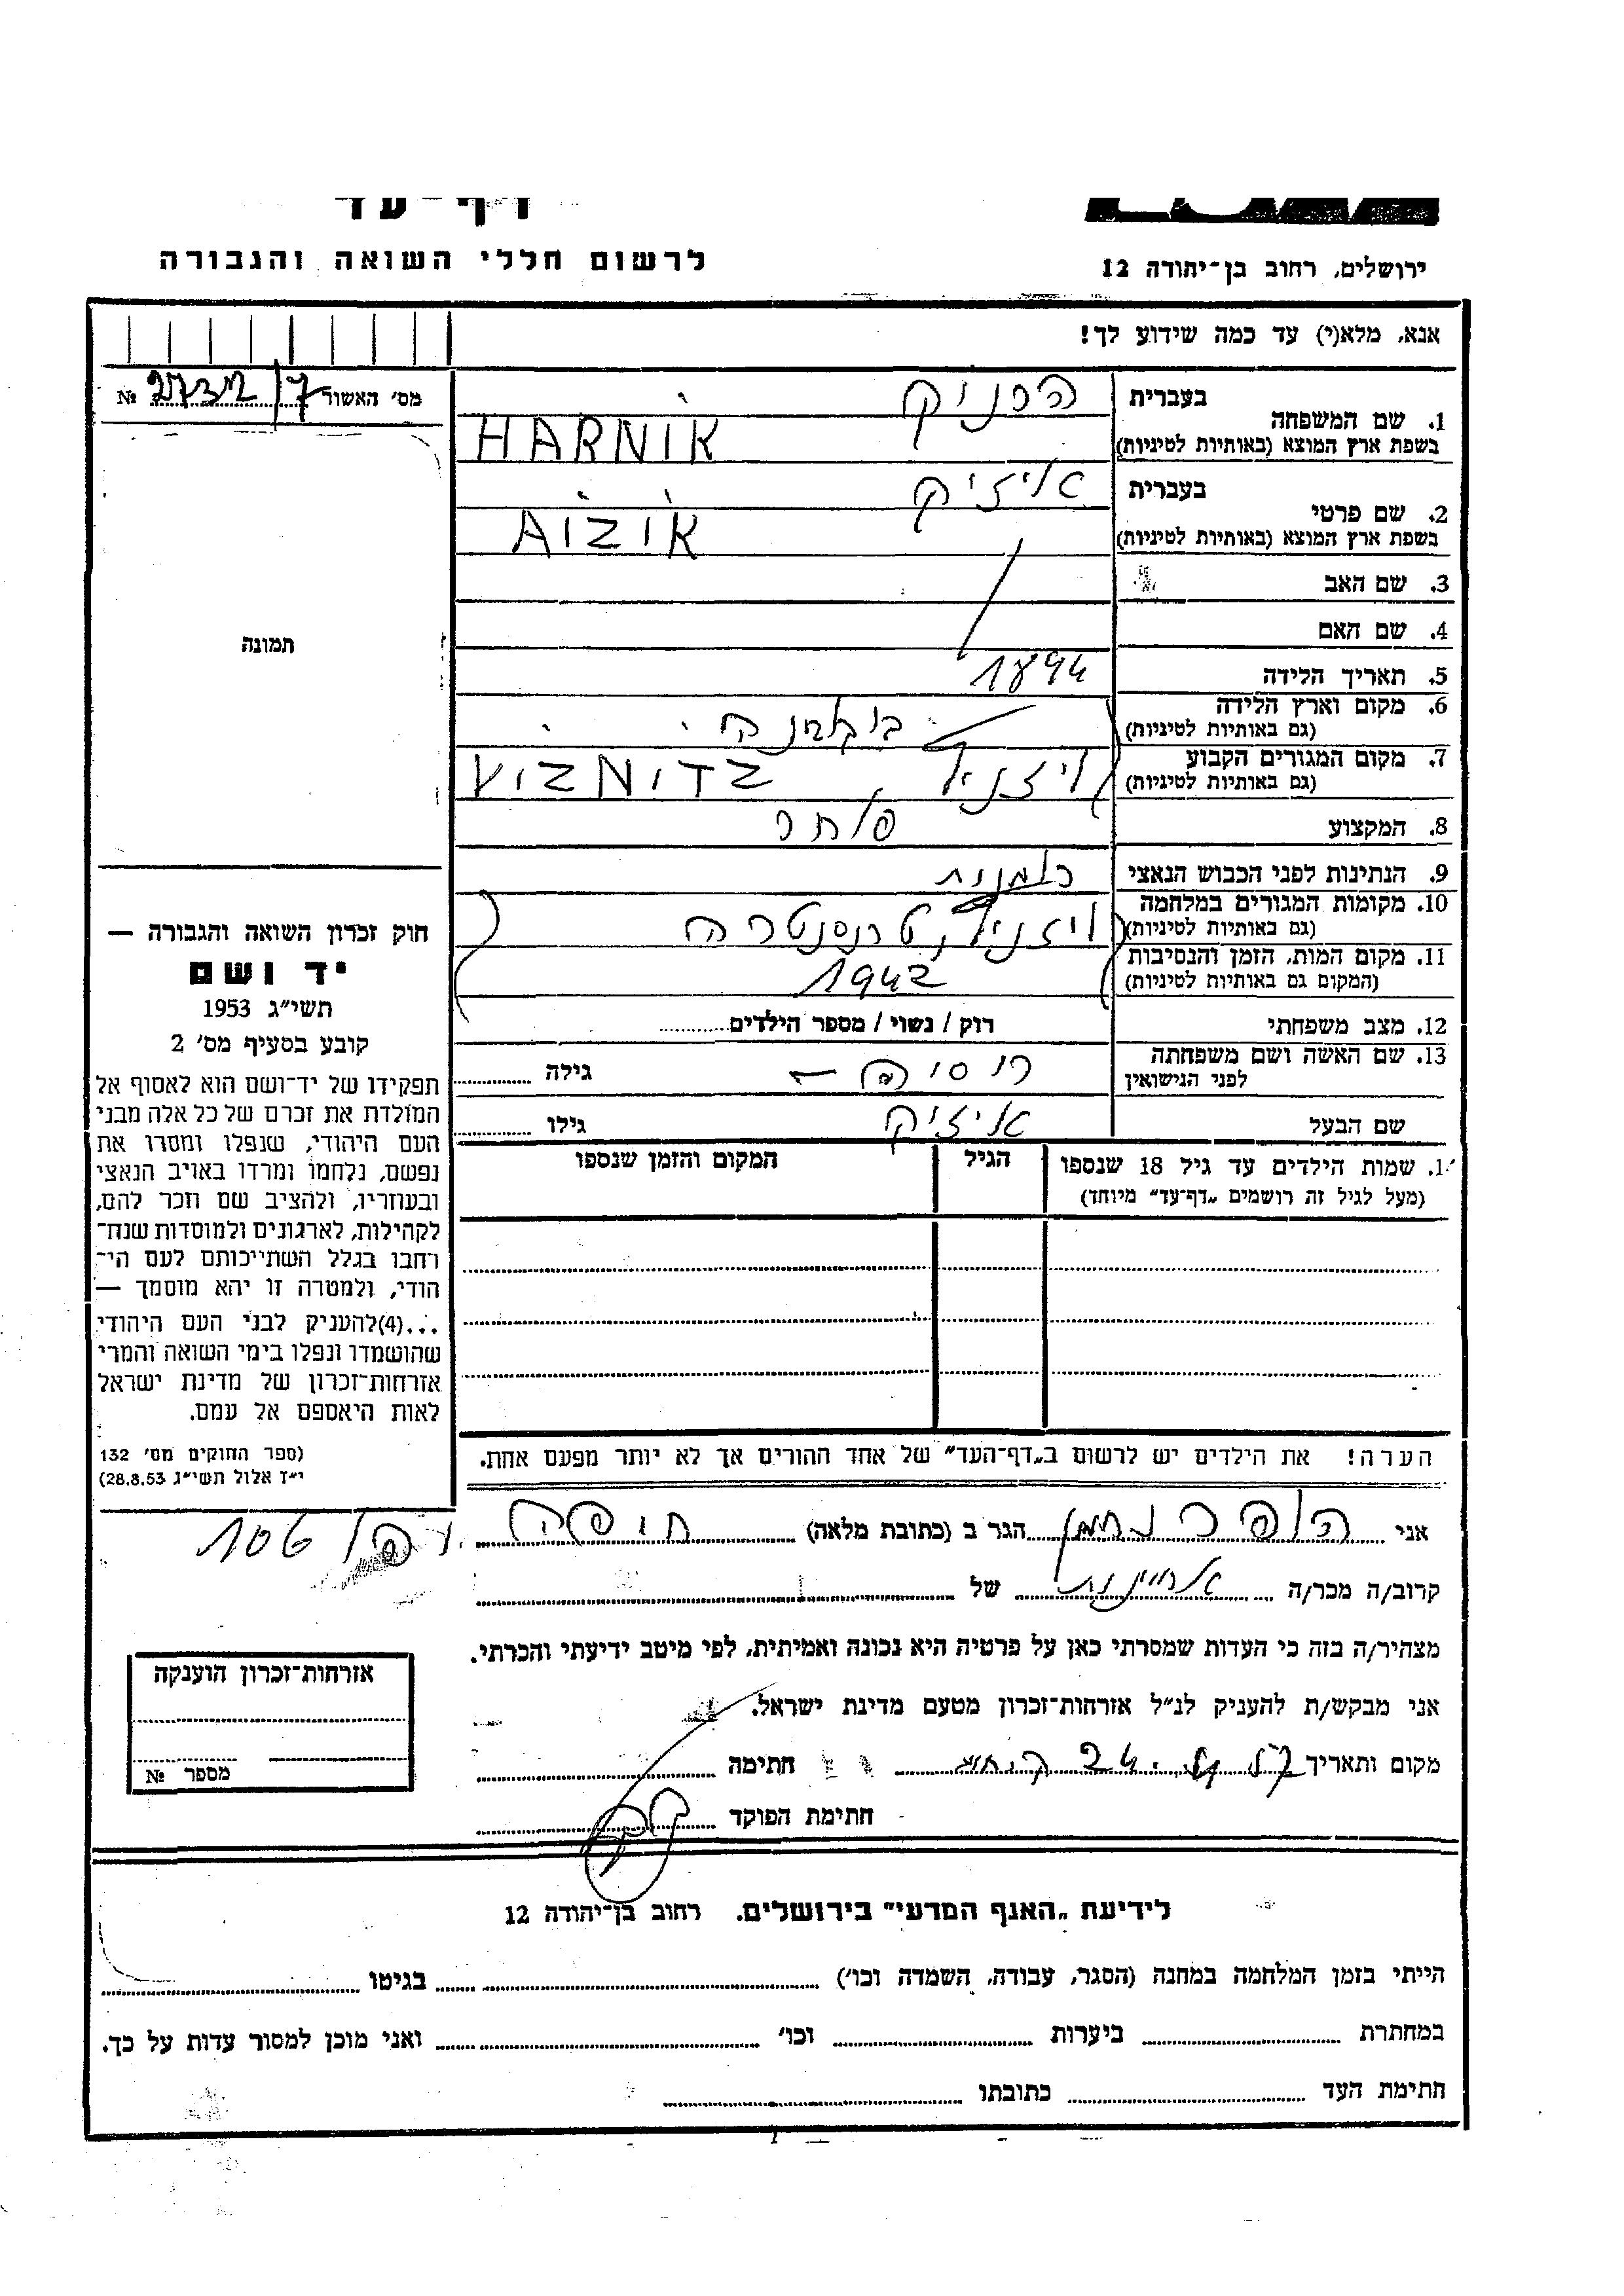 דף-עד
לרשום חללי השואה והגבורה
ירושלים, רחוב בן-יהודה 12
אנא, מלא(י) עד כמה שידוע לך!
מס' האשור №
1. שם המשפחה
בעברית הרניק
בשפת ארץ המוצא (באותיות לטיניות) HARNIK
2. שם פרטי
בעברית אייזיק
בשפת ארץ המוצא (באותיות לטיניות) AIZIK
3. שם האב
4. שם האם
5. תאריך הלידה 1894
6. מקום וארץ הלידה
(גם באותיות לטיניות) בוקובינה
7. מקום המגורים הקבוע
(גם באותיות לטיניות) VIZNITZ
8. המקצוע סוחר
9. הנתינות לפני הכבוש הנאצי רומנית
10. מקומות המגורים במלחמה
(גם באותיות לטיניות)
11. מקום המות, הזמן והנסיבות
(המקום גם באותיות לטיניות) 1942
12. מצב משפחתי רוק / נשוי / מספר הילדים
13. שם האשה ושם משפחתה
לפני הנישואין גילה
שם הבעל אייזיק גילו
1. שמות הילדים עד גיל 18 שנספו
(מעל לגיל זה רושמים „דף-עד" מיוחד)
הגיל
המקום והזמן שנספו
תמונה
חוק זכרון השואה והגבורה —
יד ושם
תשי"ג 1953
קובע בסעיף מס' 2
תפקידו של יד-ושם הוא לאסוף אל
המולדת את זכרם של כל אלה מבני
העם היהודי, שנפלו ומסרו את
נפשם, נלחמו ומרדו באויב הנאצי
ובעוזריו, ולהציב שם וזכר להם,
לקהילות, לארגונים ולמוסדות שנח-
רחבו בגלל השתייכותם לעם הי-
הודי, ולמטרה זו יהא מוסמך —
...(4)להעניק לבני העם היהודי
שהושמדו ונפלו בימי השואה והמרי
אזרחות-זכרון של מדינת ישראל
לאות היאספם אל עמם.
(ספר החוקים מס' 132
י"ז אלול תשי"ג 28.8.53)
הערה! את הילדים יש לרשום ב„דף-העד" של אחד ההורים אך לא יותר מפעם אחת.
אני הופר נחמן הגר ב (כתובת מלאה) חיפה 106
קרוב/ה מכר/ה אחיינות של
מצהיר/ה בזה כי העדות שמסרתי כאן על פרטיה היא נכונה ואמיתית, לפי מיטב ידיעתי והכרתי.
אני מבקש/ת להעניק לנ"ל אזרחות-זכרון מטעם מדינת ישראל.
מקום ותאריך חתימה
חתימת הפוקד
אזרחות-זכרון הוענקה
מספר №
לידיעת „האגף המדעי" בירושלים. רחוב בן-יהודה 12
הייתי בזמן המלחמה במחנה (הסגר, עבודה, השמדה וכו') בגיטו
במחתרת ביערות וכו' ואני מוכן למסור עדות על כך.
חתימת העד כתובתו